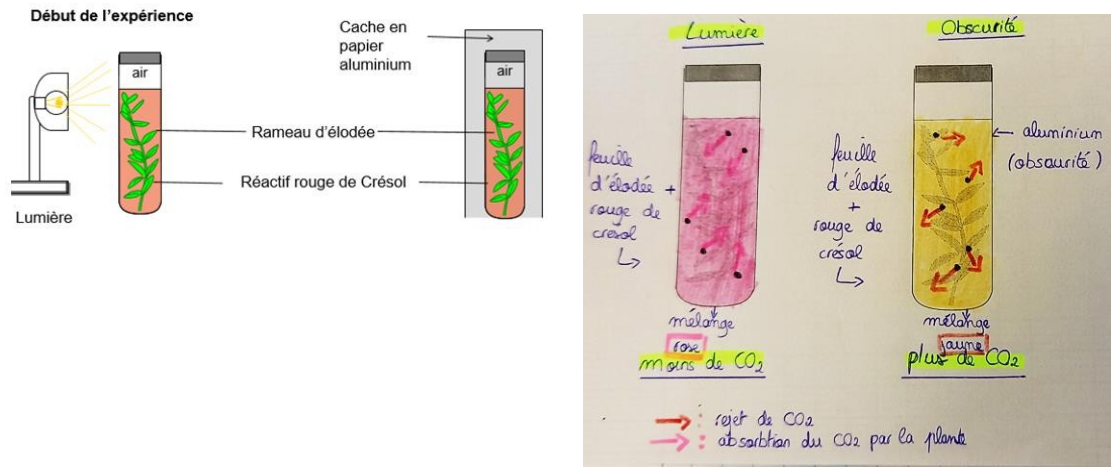 Début de l'expérience
Cache en
papier
aluminium
air
air
Rameau d'élodée
Réactif rouge de Crésol
Lumière
Lumière
Obscurité
feuille
d'élodée +
rouge de
crésol
feuille
d'élodée
+
rouge de
crésol
aluminium
(obscurité)
mélange
rose
moins de CO₂
mélange
jaune
plus de CO₂
: rejet de CO₂
: absorbtion du CO₂ par la plante